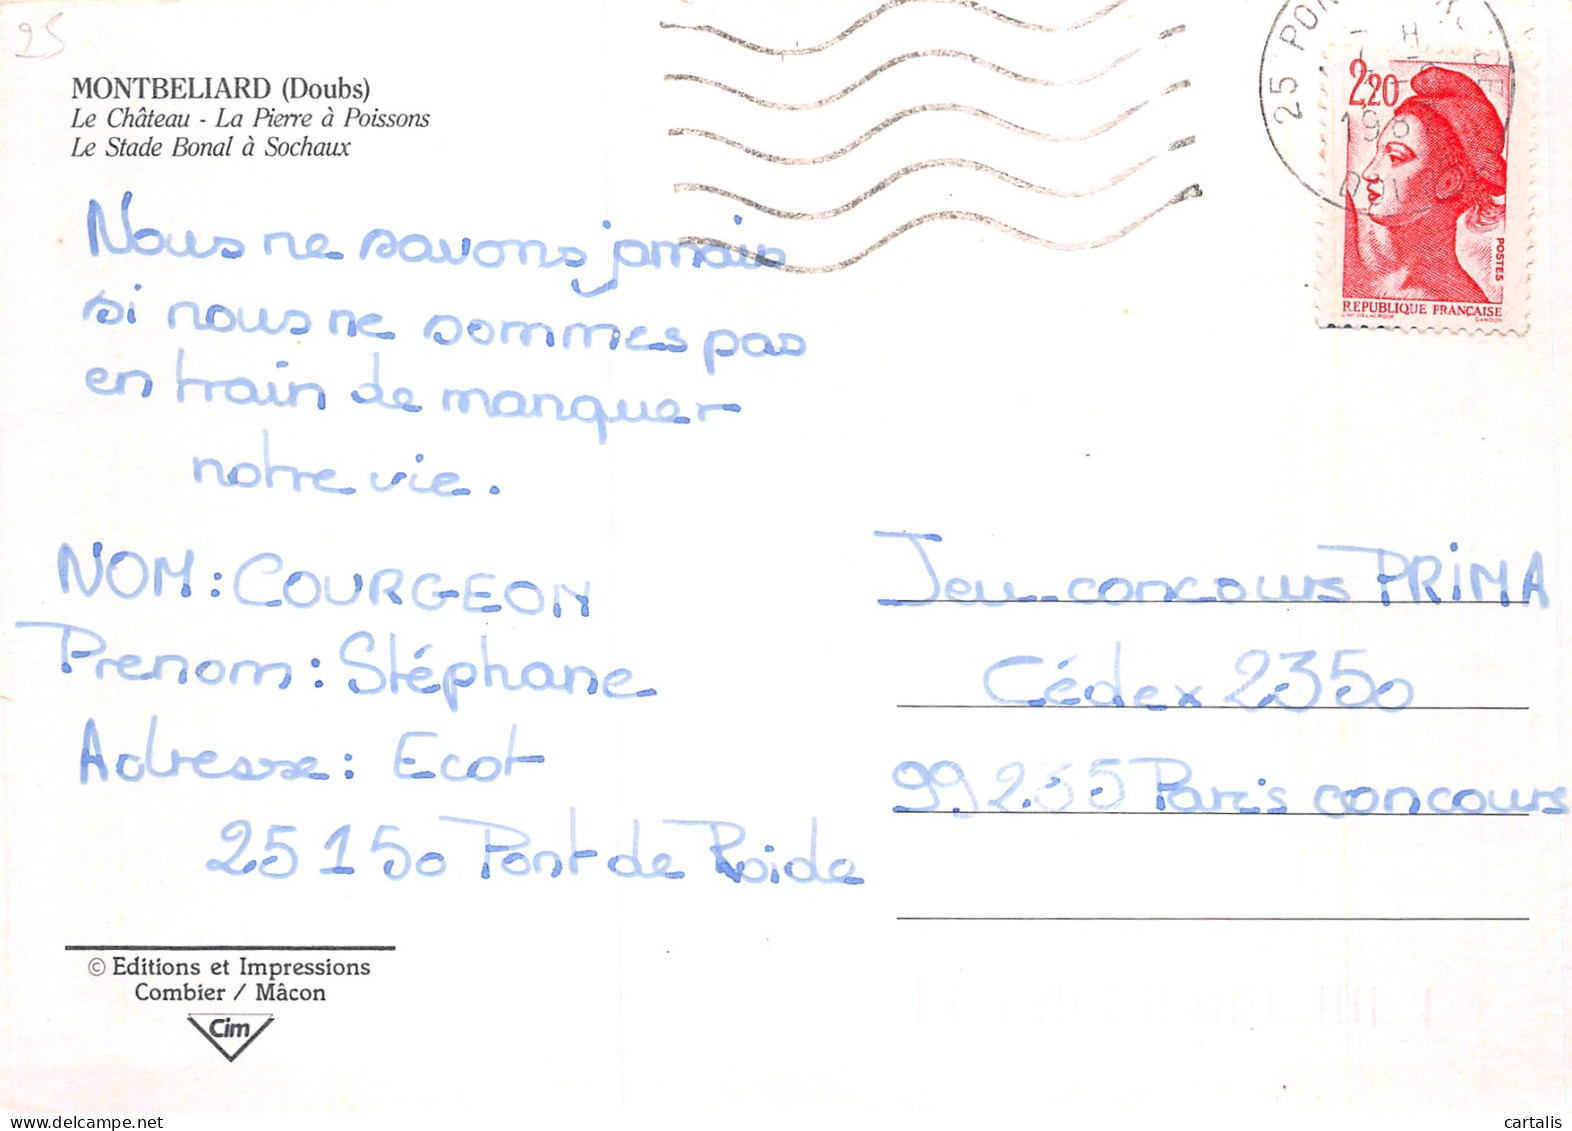 25
MONTBELIARD (Doubs)
Le Château - La Pierre à Poissons
Le Stade Bonal à Sochaux
Nous ne savons jamais
si nous ne sommes pas
en train de manquer
notre vie.
NOM : COURGEON
Prenom : Stéphane
Adresse : Ecot
25150 Pont de Roide
© Editions et Impressions
Combier / Mâcon
Cim
25 PON
1987
2,20
POSTES
REPUBLIQUE FRANÇAISE
GANDON
Jeu-concours PRiMA
Cédex 2350
99235 Paris concours
cartalis
www.delcampe.net